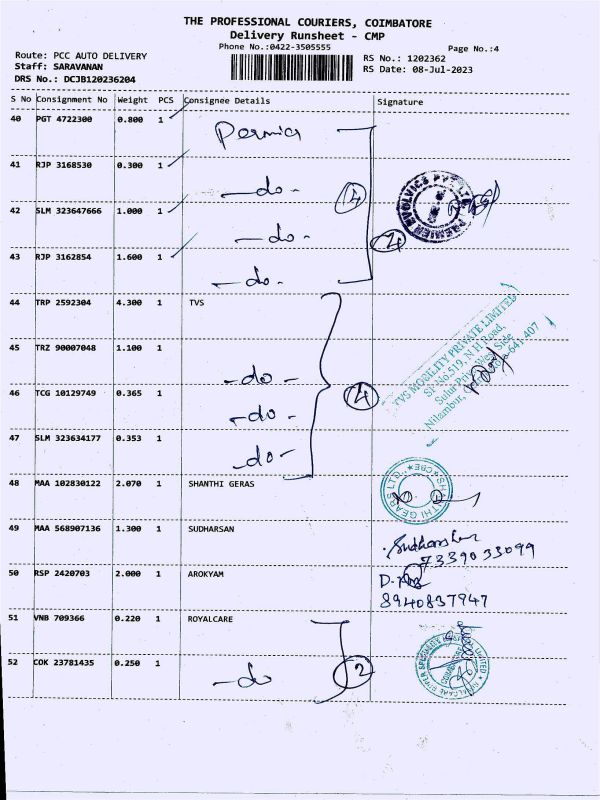 THE PROFESSIONAL COURIERS, COIMBATORE
Delivery Runsheet - CMP
Phone No.:0422-3505555
Page No.:4
Route: PCC AUTO DELIVERY
Staff: SARAVANAN
DRS No.: DCJB120236204
RS No.: 1202362
RS Date: 08-Jul-2023
S No Consignment No Weight PCS Consignee Details Signature
40 PGT 4722300 0.800 1
41 RJP 3168530 0.300 1 -do-
42 SLM 323647666 1.000 1 -do-
43 RJP 3162854 1.600 1 -do-
4
4
44 TRP 2592304 4.300 1 TVS
45 TRZ 90007048 1.100 1 -do-
46 TCG 10129749 0.365 1 -do-
47 SLM 323634177 0.353 1 -do-
4
TVS MOBILITY PRIVATE LIMITED
SF No.519, N H Road,
Nilambur,
48 MAA 102830122 2.070 1 SHANTHI GERAS
SHANTHI GEARS LTD. CBE
49 MAA 568907136 1.300 1 SUDHARSAN
7339033099
50 RSP 2420703 2.000 1 AROKYAM
8940837947
51 VNB 709366 0.220 1 ROYALCARE
52 COK 23781435 0.250 1 -do
2